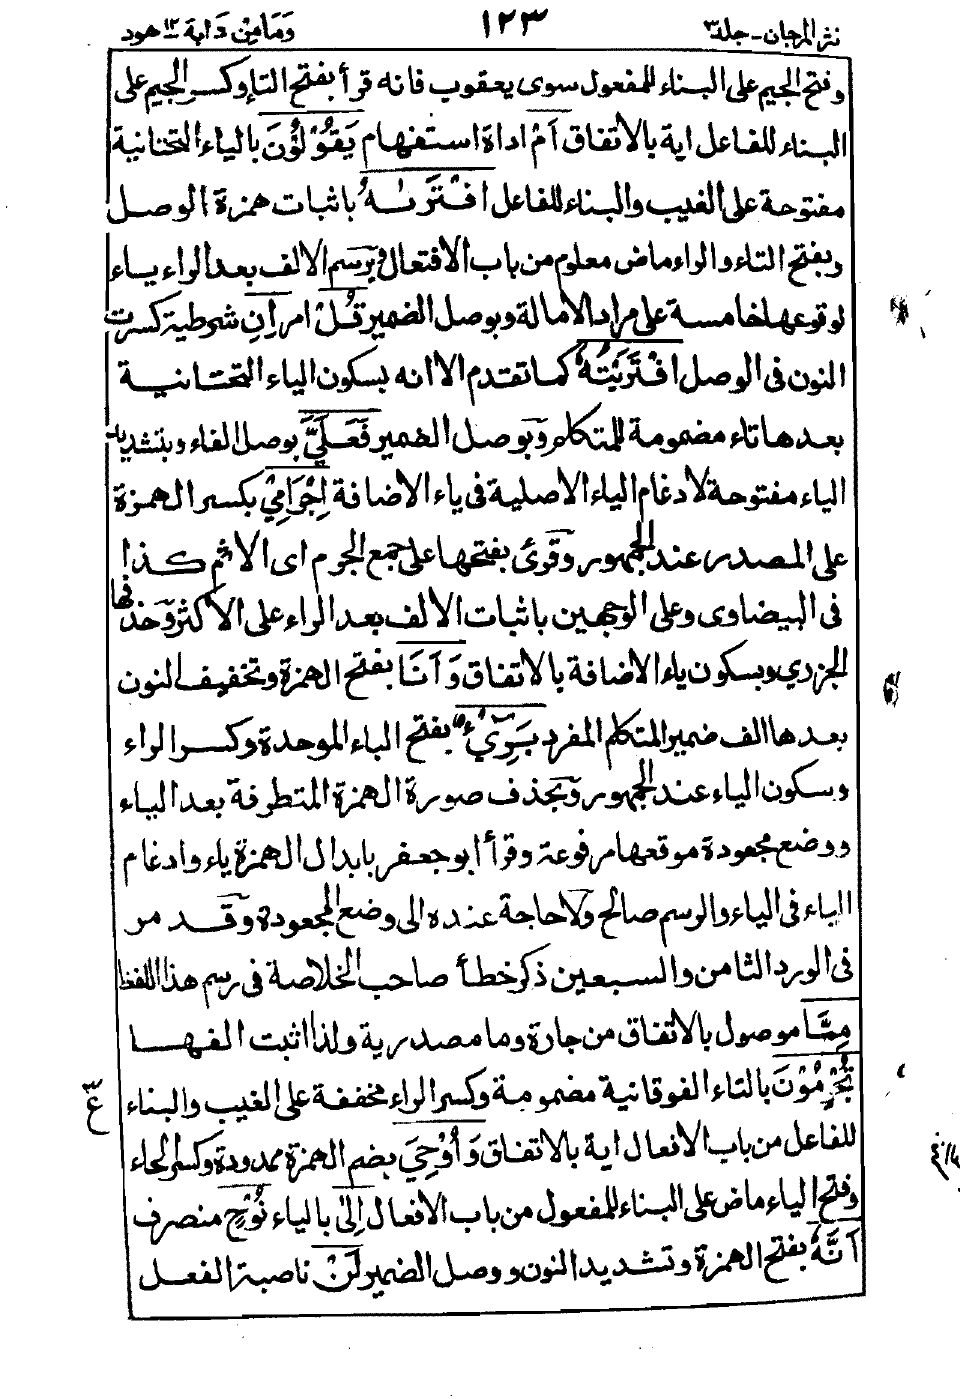 نثر المرجان - جلد ٣ ١٢٣ وَمَا مِنْ دَابة ١٢ هود
وفتح الجيم على البناء للمفعول سوى يعقوب فانه قرأ بفتح التاء وكسر الجيم على
البناء للفاعل اية بالاتفاق اَمْ اداة استفهام يَقُوْلُوْنَ بالياء التحتانية
مفتوحة على الغيب والبناء للفاعل افْتَرَىٰهُ باثبات همزة الوصل
وبفتح التاء والراء ماض معلوم من باب الافتعال ويرسم الالف بعد الراء ياء
لوقوعها خامسة على مراد الامالة وبوصل الضمير قُلْ امر اِنِ شرطية كسرت
النون فى الوصل افْتَرَيْتُهٗ كما تقدم الا انه بسكون الياء التحتانية
بعدها تاء مضمومة للمتكلم وبوصل الضمير فَعَلَيَّ بوصل الفاء وبتشديد
الياء مفتوحة لادغام الياء الاصلية فى ياء الاضافة اِجْرَامِيْ بكسر الهمزة
على المصدر عند الجمهور وقرئ بفتحها على جمع الجرم اى الاثم كذا
فى البيضاوى وعلى الوجهين باثبات الالف بعد الراء على الاكثر وحذفها
الجزري وبسكون ياء الاضافة بالاتفاق وَاَنَا بفتح الهمزة وتخفيف النون
بعدها الف ضمير المتكلم المفرد بَرِيْٓءٌ بفتح الباء الموحدة وكسر الراء
وبسكون الياء عند الجمهور وبحذف صورة الهمزة المتطرفة بعد الياء
ووضع مجعودة موقعها مرفوعة وقرأ ابو جعفر بابدال الهمزة ياء وادغام
الياء فى الياء والرسم صالح ولا حاجة عنده الى وضع المجعودة وقد مر
فى الورد الثامن والسبعين ذكر خطأ صاحب الخلاصة فى رسم هذا اللفظ
مِمَّا موصول بالاتفاق من جارة وما مصدرية ولذا اثبت الفها
تُجْرِمُوْنَ بالتاء الفوقانية مضمومة وكسر الراء مخففة على الغيب والبناء
للفاعل من باب الافعال اية بالاتفاق وَاُوْحِيَ بضم الهمزة ممدودة وكسر الحاء
وفتح الياء ماض على البناء للمفعول من باب الافعال اِلىٰ بالياء نُوْحٍ منصرف
اَنَّهٗ بفتح الهمزة وتشديد النون ووصل الضمير لَنْ ناصبة الفعل
ع